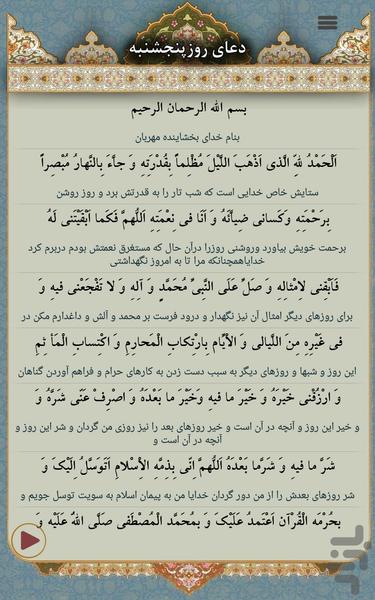 دعای روزپنجشنبه
بسم الله الرحمان الرحیم
بنام خدای بخشاینده مهربان
اَلْحَمْدُ لِلّهِ الَّذى اَذْهَبَ اللَّيْلَ مُظْلِماً بِقُدْرَتِهِ وَ جآءَ بِالنَّهارِ مُبْصِراً
ستایش خاص خدایی است که شب تار را به قدرتش برد و روز روشن
بِرَحْمَتِهِ وَكَسانى ضِيآئَهُ وَ اَنَا فى نِعْمَتِهِ اَللّهُمَّ فَكَما اَبْقَيْتَنى لَهُ
برحمت خویش بیاورد وروشنی روزرا درآن حال که مستغرق نعمتش بودم دربرم کرد
خدایاهمچنانکه مرا تا به امروز نگهداشتی
فَاَبْقِنى لِاَمْثالِهِ وَ صَلِّ عَلَى النَّبِىِّ مُحَمَّدٍ وَ آلِهِ وَ لا تَفْجَعْنى فيهِ وَ
برای روزهای دیگر امثال آن نیز نگهدار و درود فرست بر محمد و آلش و داغدارم مکن در
فى غَيْرِهِ مِنَ اللَّيالى وَ الاَْيّامِ بِارْتِكابِ الْمَحارِمِ وَ اكْتِسابِ الْمَأ ثِمِ
این روز و شبها و روزهای دیگر به سبب دست زدن به کارهای حرام و فراهم آوردن گناهان
وَ ارْزُقْنى خَيْرَهُ وَ خَيْرَ ما فيهِ وَخَيْرَ ما بَعْدَهُ وَ اصْرِفْ عَنّى شَرَّهُ وَ
و خیر این روز و آنچه در آن است و خیر روزهای بعد را نیز روزی من گردان و شر این روز و
آنچه در آن است و
شَرَّ ما فيهِ وَ شَرَّما بَعْدَهُ اَللّهُمَّ اِنّى بِذِمَّهِ الاِْسْلامِ اَتَوَسَّلُ اِلَيْكَ وَ
شر روزهای بعدش را از من دور گردان خدایا من به پیمان اسلام به سویت توسل جویم و
بِحُرْمَهِ الْقُرْآنِ اَعْتَمِدُ عَلَيْكَ وَ بِمُحَمَّدٍ الْمُصْطَفى صَلَّى اللهُ عَلَيْهِ وَ
بازار